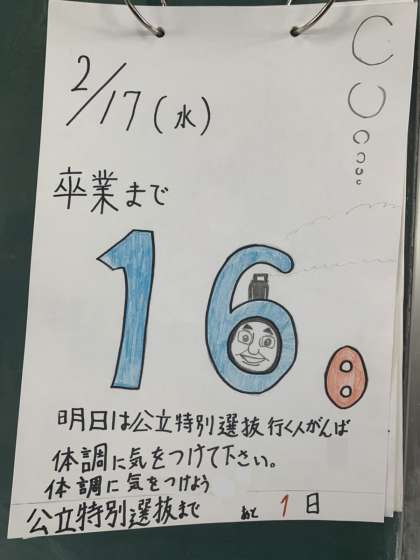 2/17(水)
卒業まで
16日
明日は公立特別選抜行く人がんば
体調に気をつけて下さい。
体調に気をつけよう
公立特別選抜まで あと 1日